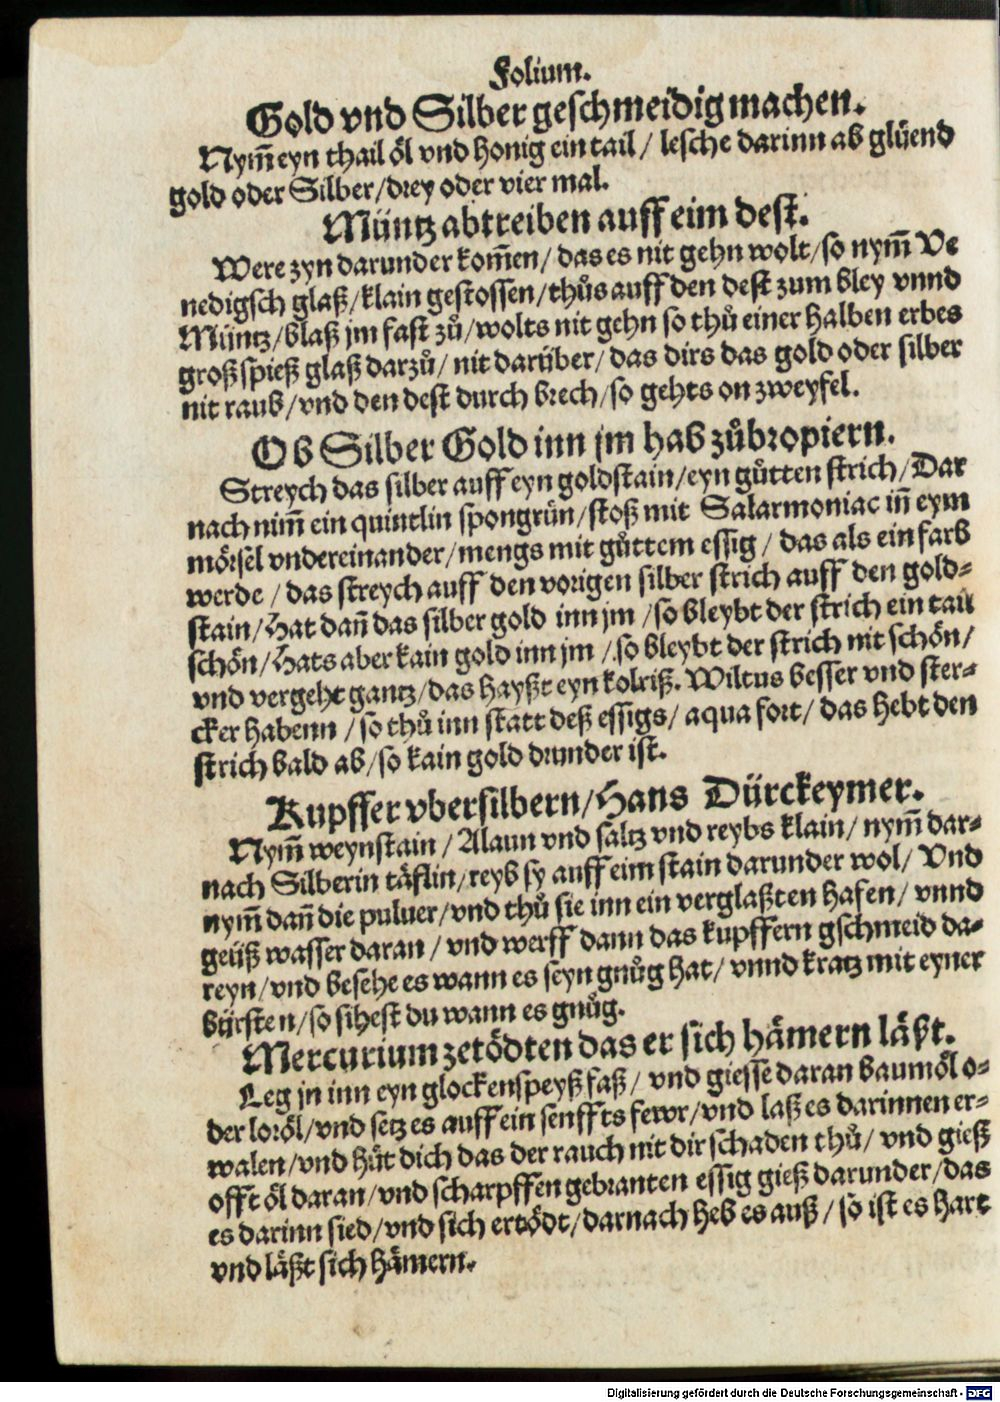 Folium.
Gold vnd Silber geschmeidig machen.
Nym̃ eyn thail öl vnd honig ein tail / lesche darinn ab glüend
gold oder Silber / drey oder vier mal.
Müntz abtreiben auff eim dest.
Were zyn darunder kom̃en / das es nit gehn wolt / so nym̃ Ve
nedigsch glaß / klain gestossen / thůs auff den dest zum bley vnnd
Müntz / blaß jm fast zů / wolts nit gehn so thů einer halben erbes
groß spieß glaß darzů / nit darüber / das dirs das gold oder silber
nit raub / vnd den dest durch brech / so gehts on zweyfel.
Ob Silber Gold inn jm hab zůbropiern.
Streych das silber auff eyn goldstain / eyn gůtten strich / Dar
nach nim̃ ein quintlin spongrün / stoß mit Salarmoniac iñ eym
mörsel vndereinander / mengs mit gůttem essig / das als ein farb
werde / das streych auff den vorigen silber strich auff den gold-
stain / Hat dañ das silber gold inn jm / so bleybt der strich ein tail
schön / Hats aber kain gold inn jm / so bleybt der strich nit schön /
vnd vergeht gantz / das hayßt eyn kolriß. Wiltus besser vnd ster-
cker habenn / so thů inn statt deß essigs / aqua fort / das hebt den
strich bald ab / so kain gold drunder ist.
Kupffer vbersilbern / Hans Dürckeymer.
Nym̃ weynstain / Alaun vnd saltz vnd reybs klain / nym̃ dar-
nach Silberin täflin / reyb sy auff eim stain darunder wol / Vnd
nym̃ dañ die puluer / vnd thů sie inn ein verglaßten hafen / vnnd
geüß wasser daran / vnd werff dann das kupffern gschmeid da-
reyn / vnd besehe es wann es seyn gnůg hat / vnnd kratz mit eyner
bürsten / so sihest du wann es gnůg.
Mercurium zetödten das er sich hämern läßt.
Leg jn inn eyn glockenspeyß faß / vnd giesse daran baumöl o-
der loröl / vnd setz es auff ein senffts fewr / vnd laß es darinnen er-
walen / vnd hüt dich das der rauch nit dir schaden thů / vnd gieß
offt öl daran / vnd scharpffen gebranten essig gieß darunder / das
es darinn sied / vnd sich ertödt / darnach heb es auß / so ist es hart
vnd läßt sich hämern.
Digitalisierung gefördert durch die Deutsche Forschungsgemeinschaft - DFG